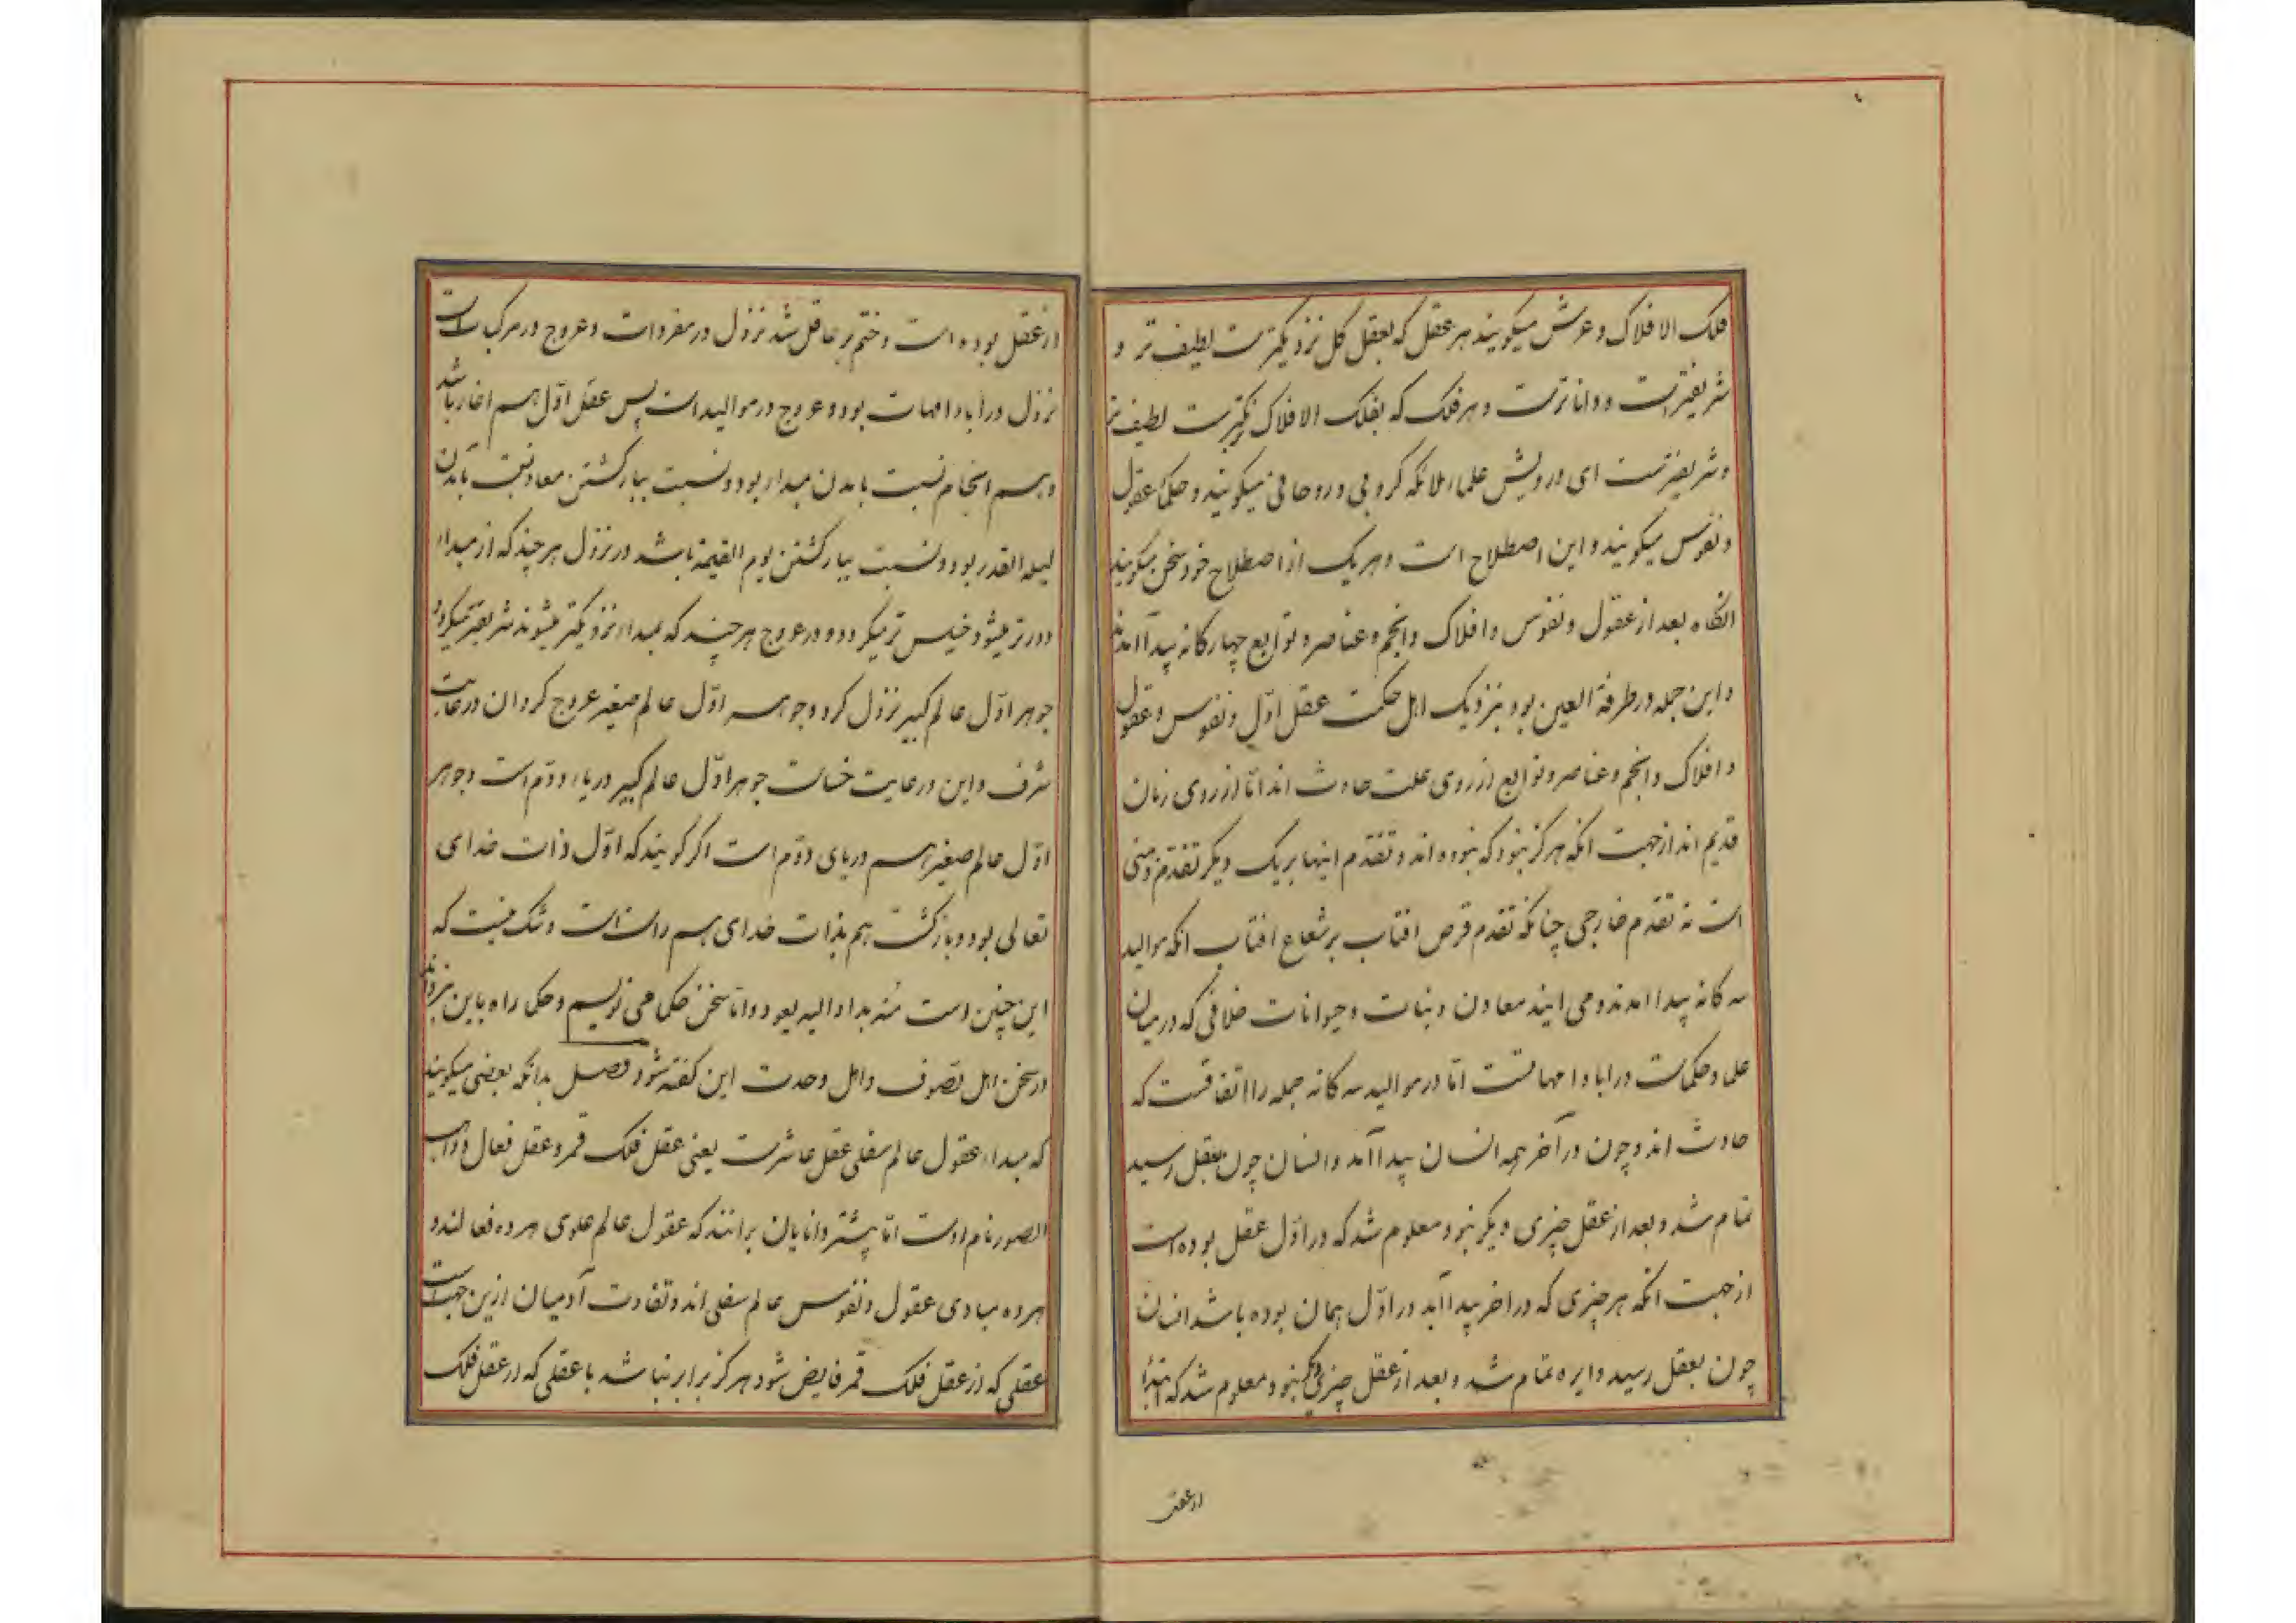 فلک الافلاک و عرش میکویند هر عقل که بعقل کل نزدیکترست لطیف تر و
شریفترست و داناترست و هر فلک که بفلک الافلاک نزدیکترست لطیف تر
و شریفترست ای درویش علما ملائکه کروبی و روحانی میکویند و حکما عقول
و نفوس میکویند و این اصطلاح است و هر یک از اصطلاح خود سخن میکویند
انکاه بعد از عقول و نفوس و افلاک و انجم و عناصر و توابع چهارکانه پیدا آمدند
و این جمله در طرفة العین بود بنزدیک اهل حکمت عقل اوّل و نفوس و عقول
و افلاک و انجم و عناصر و توابع از روی علت حادث اند امّا از روی زمان
قدیم اند از جهت انکه هرکز نبود که نبوده اند و تقدّم اینها بر یک دیکر تقدّم ذهنی
است نه تقدم خارجی چنانکه تقدم قرص افتاب بر شعاع افتاب انکه موالید
سه کانه پیدا امدند و می ایند معادن و نبات و حیوانات خلافی که در میان
علما و حکماست در ابا و امهاتست امّا در موالید سه کانه جمله را اتفاقست که
حادث اند و چون در آخر همه انسان پیدا آمد و انسان چون بعقل رسید
تمام شد و بعد از عقل چیزی دیکر نبود معلوم شد که در اوّل عقل بوده است
از جهت انکه هر چیزی که در اخر پیدا آید در اوّل همان بوده باشد انسان
چون بعقل رسید دایره تمام شد و بعد از عقل چیزی دیکر نبود معلوم شد که ابتدا
از عقل
از عقل بوده است و ختم بر عاقل شد نزول در مفردات و عروج در مرکب است
نزول در آبا و امهات بود و عروج در موالید است پس عقل اوّل هم اغاز باشد
و هم انجام نسبت بامدن مبدا بود و نسبت ببازکشتن معاد نسبت بآمدن
لیله القدر بود و نسبت ببازکشتن یوم القیمة باشد در نزول هر چند که از مبدا
دورتر میشود خسیس تر میکردد و در عروج هر چند که بمبدا نزدیکتر میشوند شریفتر میکردد
جوهر اوّل عالم کبیر نزول کرد و جوهر اوّل عالم صغیر عروج کرد ان در غایت
شرف و این در غایت خساست جوهر اوّل عالم کبیر دریاء دوّم است و جوهر
اوّل عالم صغیر هم دریای دوّم است اکر کویند که اوّل ذات خدای
تعالی بود و بازکشت هم بذات خدای هم راست است و شک نیست که
این چنین است منه بدا و الیه یعود و امّا سخن حکما می نویسم و حکما راه باین نبردند
در سخن اهل تصوف و اهل وحدت این کفته شود فصل بدانکه بعضی میکویند
که مبدا عقول عالم سفلی عقل عاشرست یعنی عقل فلک قمر و عقل فعال و واهب
الصور نام اوست امّا بیشتر دانایان برانند که عقول عالم علوی هر ده فعالند و
هر ده مبادی عقول و نفوس عالم سفلی اند و تفاوت آدمیان ازین جهت است
عقلی که از عقل فلک قمر فایض شود هرکز برابر نباشد با عقلی که از عقل فلک